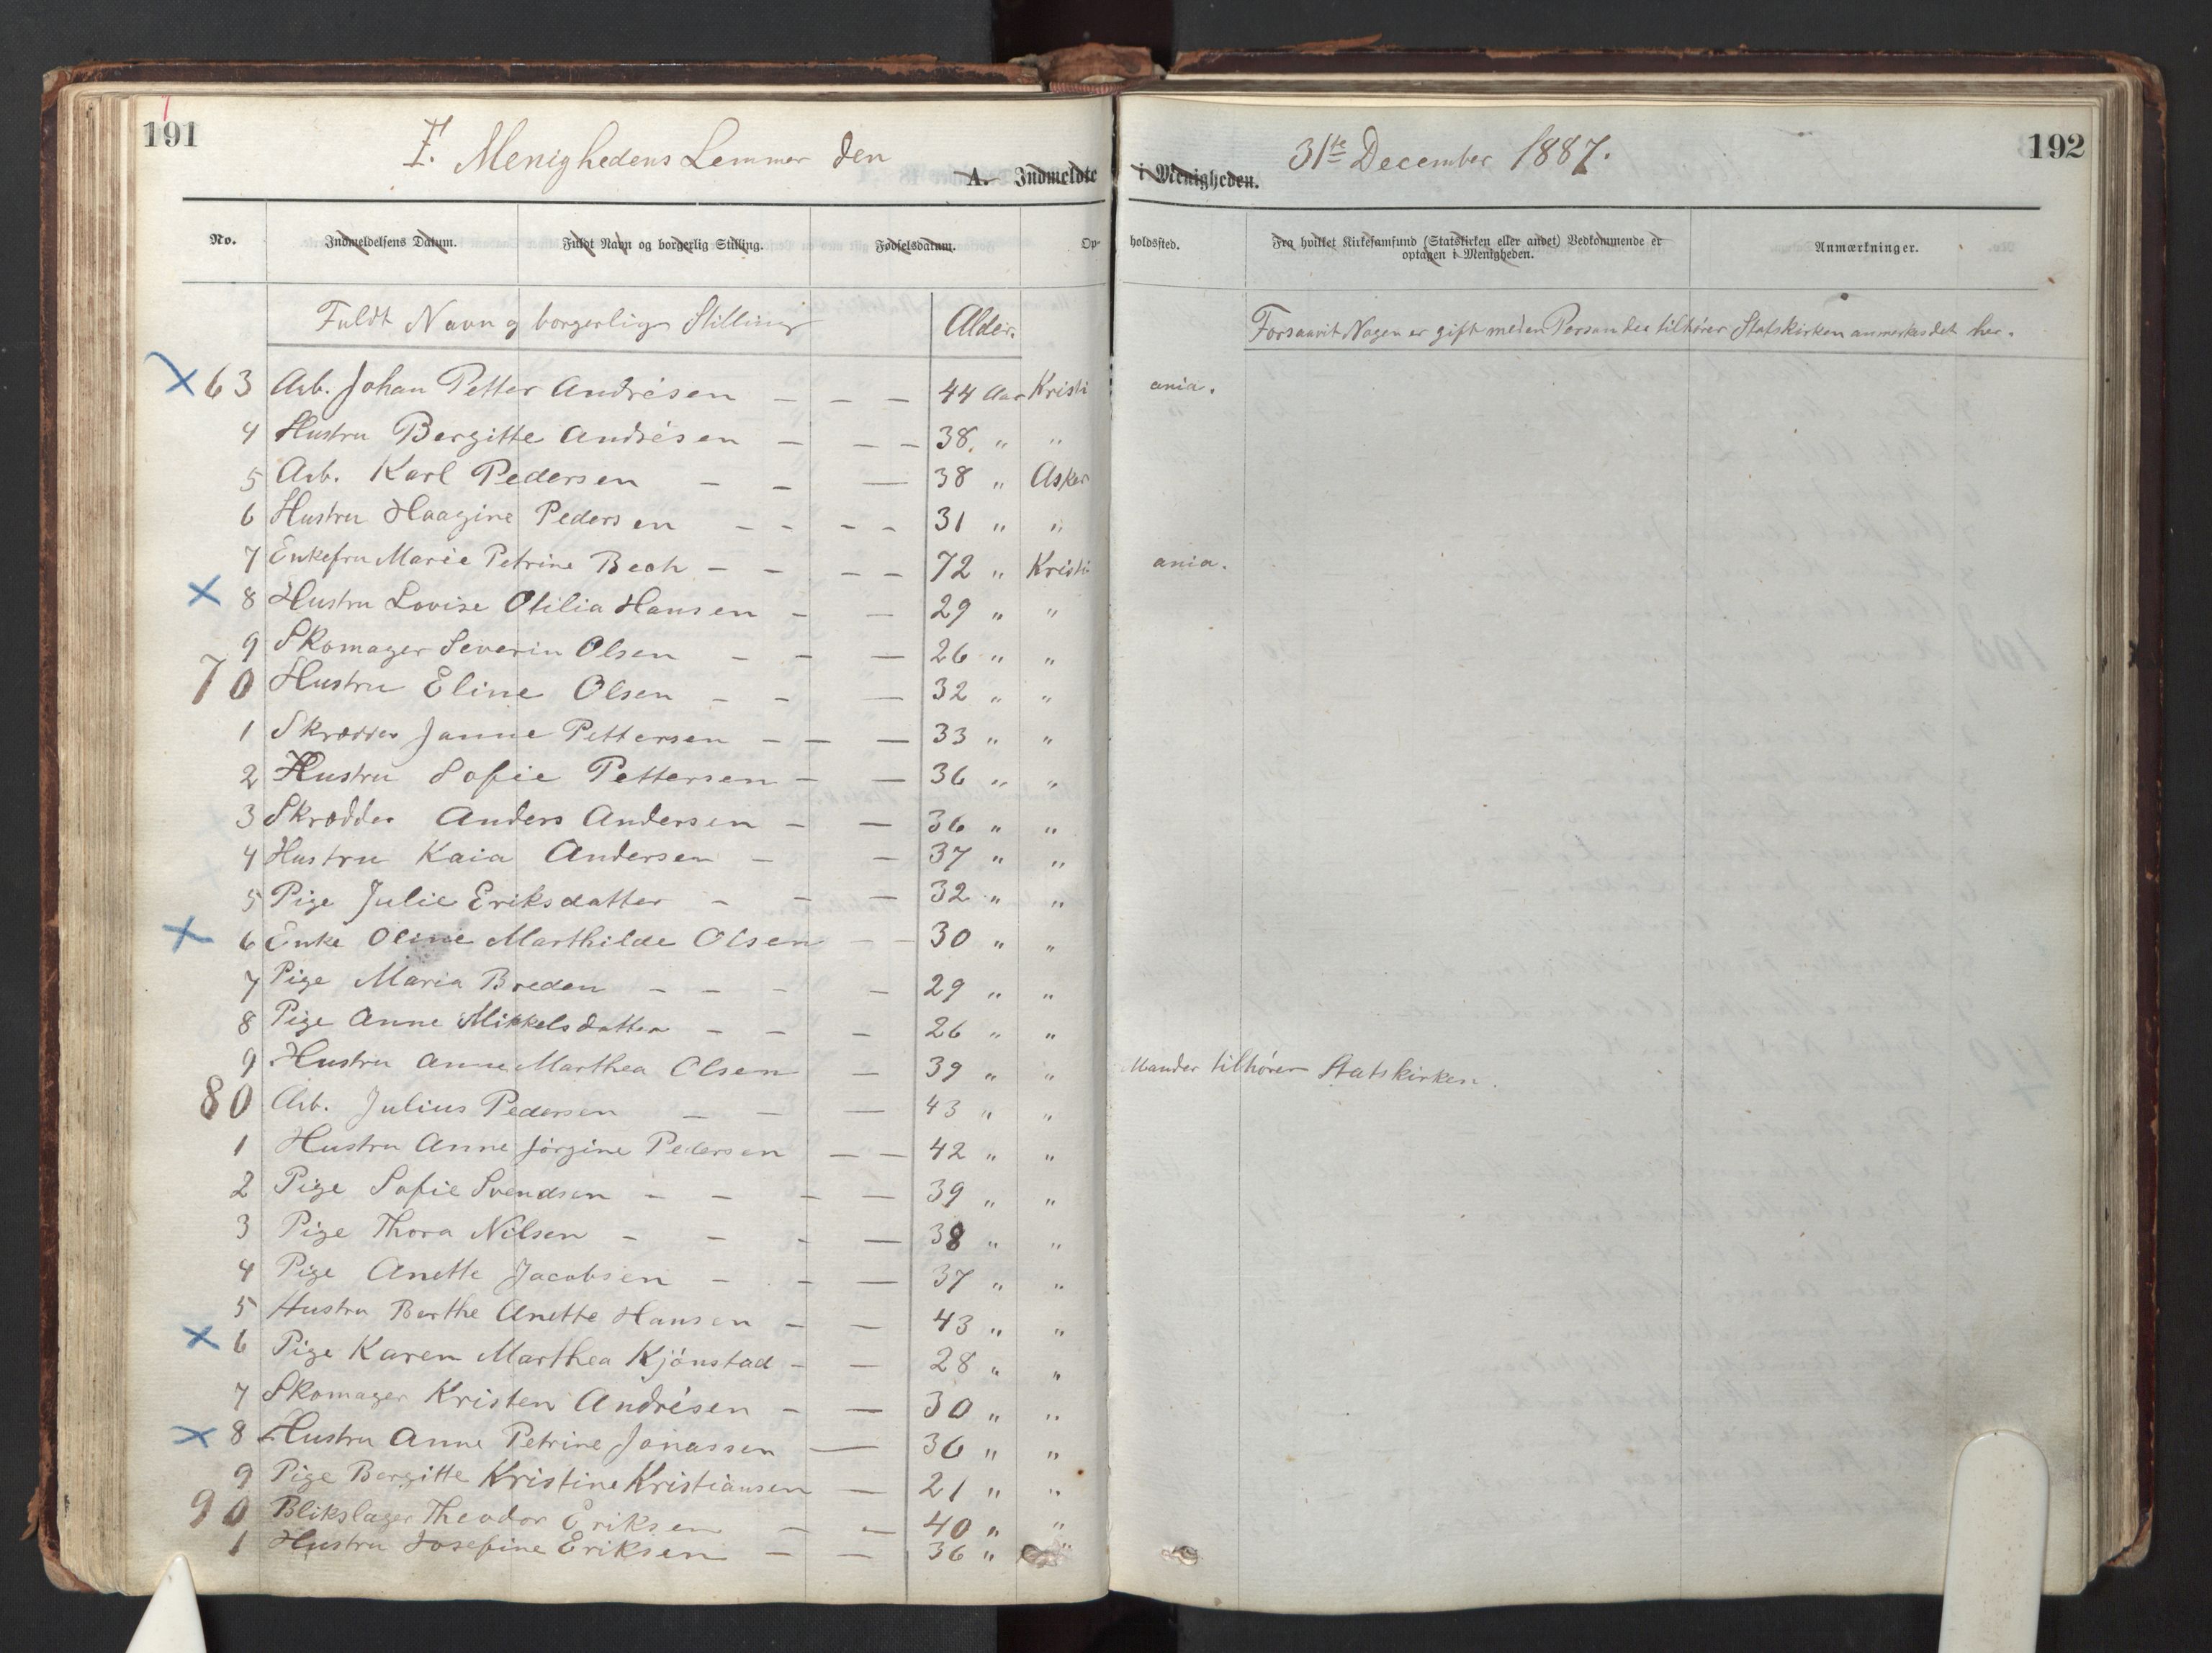 191
I. Menighedens Lemmer den 31te December 1887.
192
A. Indmeldte i Menigheden.
No. Indmeldelsens Datum. Fuldt Navn og borgerlig Stilling. Fødselsdatum. Opholdssted. Fra hvilket Kirkesamfund (Statskirken eller andet) Vedkommende er optagen i Menigheden. Anmærkninger.
Fuldt Navn og borgerlig Stilling Alder. Forsaavit Nogen er gift med en Person der tilhører Statskirken anmerkes det her.
x 63 Arb. Johan Petter Andrésen — — — 44 Aar Kristi ania.
4 Hustru Bergitte Andrésen — — — 38. " "
5 Arb. Karl Pedersen — — — 38 " Asker
6 Hustru Haagine Pedersen — — — — 31 " "
7 Enkefru Marie Petrine Bech — — — — 72 " Kristi ania.
x 8 Hustru Lovise Otilia Hansen — — 29 " "
9 Skomager Severin Olsen — — — 26 " "
70 Hustru Eline Olsen — — — 32 " "
1 Skrædder Janne Pettersen — — — 33 " "
2 Hustru Sofie Pettersen — — 36 " "
3 Skrædder Anders Andersen — — 36 " "
4 Hustru Kaia Andersen — — 37 " "
5 Pige Julie Eriksdatter — — — 32 " "
x 6 Enke Oline Marthilde Olsen — — 30 " "
7 Pige Maria Breden — — — — 29 " "
8 Pige Anne Mikkelsdatter — — — 26 " "
9 Hustru Anne Marthea Olsen — 39 " " Manden tilhører Statskirken.
80 Arb. Julius Pedersen — — — 43 " "
1 Hustru Anne Jørgine Pedersen — — 42 " "
2 Pige Sofie Svendsen — — — — 39 " "
3 Pige Thora Nilsen — — — — 38 " "
4 Pige Anette Jacobsen — — — 37 " "
5 Hustru Berthe Anette Hansen — — 43 " "
x 6 Pige Karen Marthea Kjønstad — — 28 " "
7 Skomager Kristen Andrésen — — 30 " "
x 8 Hustru Anne Petrine Jonassen — 36 " "
9 Pige Bergitte Kristine Kristiansen — 21 " "
90 Blikslager Theodor Eriksen — — 40 " "
1 Hustru Josefine Eriksen — — 36 " "